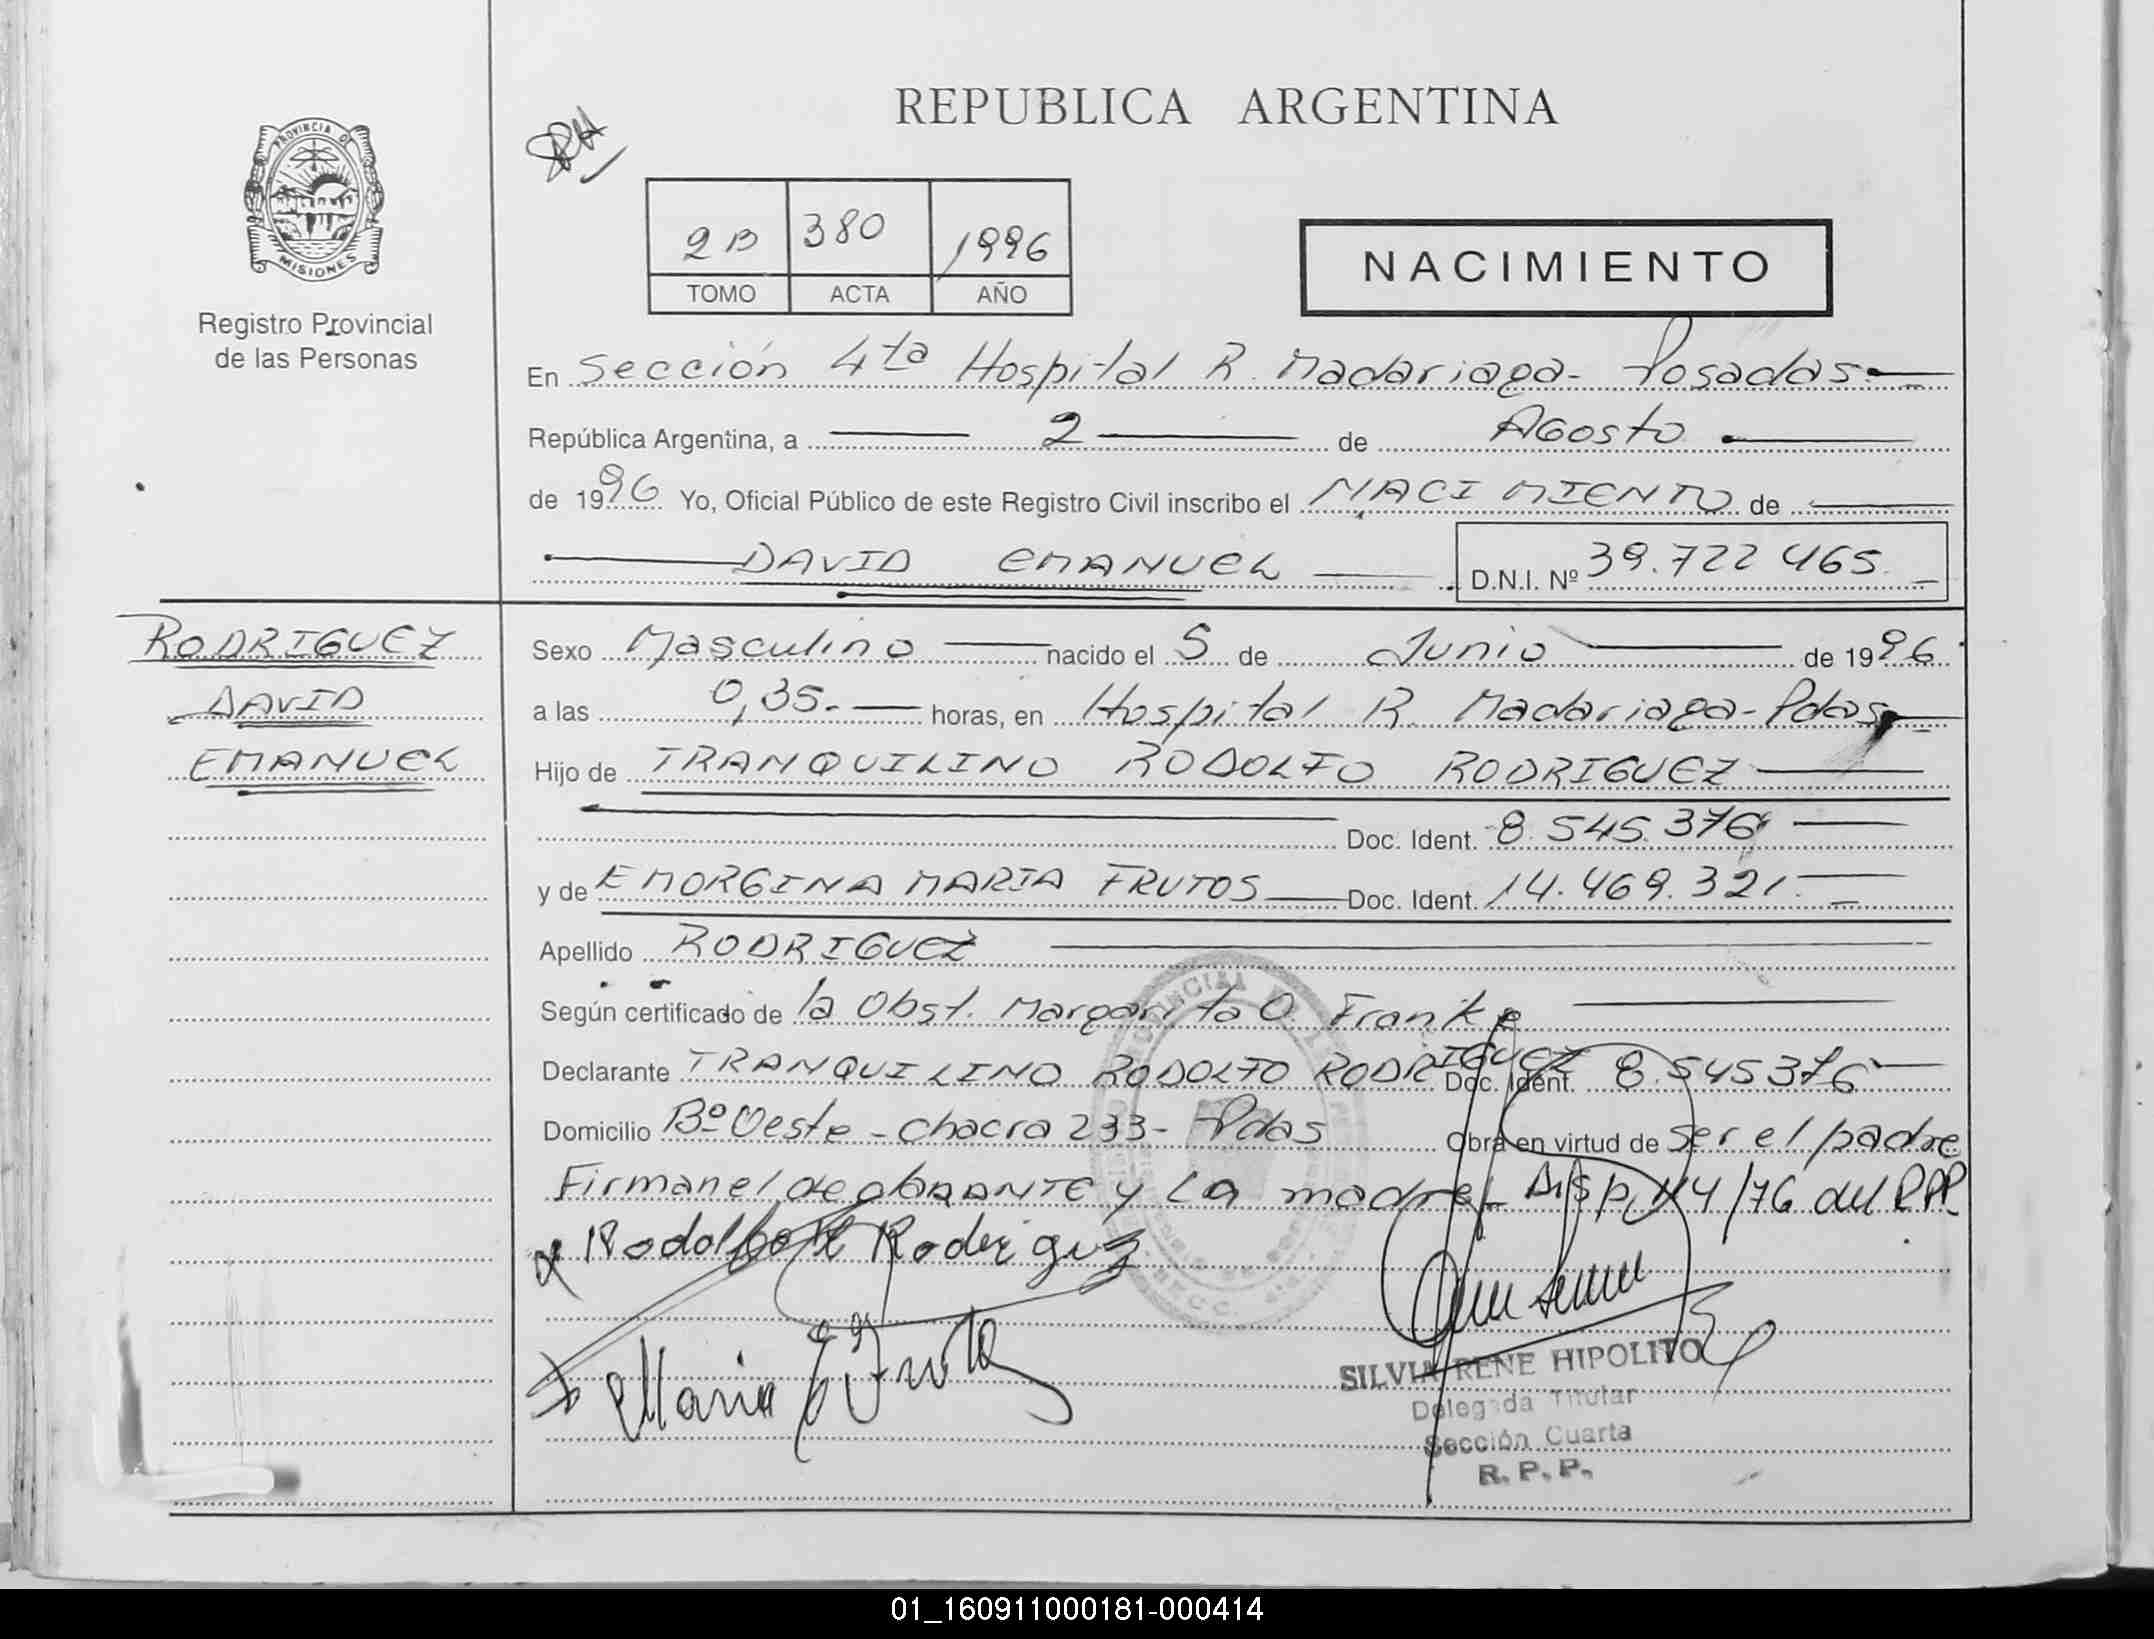 REPUBLICA ARGENTINA
PROVINCIA DE
MISIONES
Registro Provincial
de las Personas
2B 380 1996
TOMO ACTA AÑO
NACIMIENTO
En Sección 4ta Hospital R. Madariaga - Posadas.
República Argentina, a 2 de Agosto
de 1996 Yo, Oficial Público de este Registro Civil inscribo el NACIMIENTO de
DAVID EMANUEL D.N.I. Nº 39.722.465
RODRIGUEZ
DAVID
EMANUEL
Sexo Masculino nacido el 5 de Junio de 1996
a las 0,35.- horas, en Hospital R. Madariaga - Pdas
Hijo de TRANQUILINO RODOLFO RODRIGUEZ
Doc. Ident. 8.545.376
y de EMORGINA MARIA FRUTOS Doc. Ident. 14.469.321.
Apellido RODRIGUEZ
Según certificado de la Obst. Margarita O. Franke
Declarante TRANQUILINO RODOLFO RODRIGUEZ Doc. Ident. 8.545376
Domicilio Bº Oeste - chacra 233 - Pdas Obra en virtud de ser el padre
Firman el declarante y La madre Disp. 114/76 del RPP.
Rodolfo Rodriguz
Maria E Frutos
SILVIA RENE HIPOLITO
Delegada Titular
Sección Cuarta
R. P. P.
01_160911000181-000414